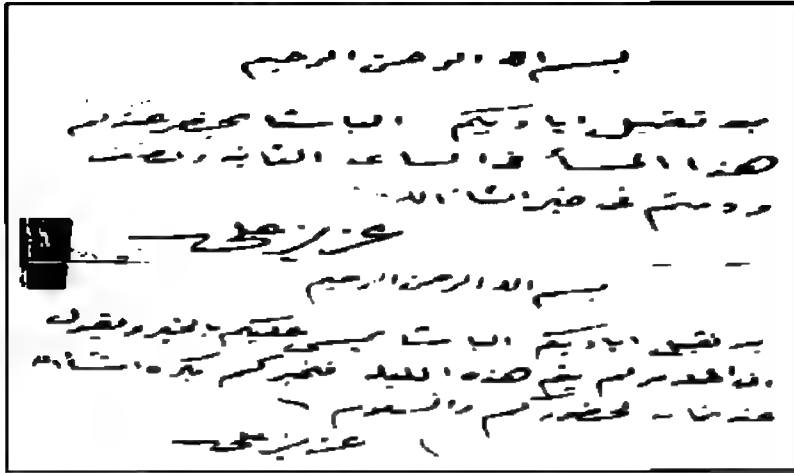 بسم الله الرحمن الرحيم
بعد تقبيل اياديكم الباشا يحضر عندكم
هذا المسأ في الساعه الثانيه ونصف
ودمتم في خير انشا الله
عزيز علي
بسم الله الرحمن الرحيم
بعد تقبيل اياديكم الباشا يمسي عليكم بالخير ويقول
هذه الليله فنخبركم بكره انشأ الله
لحضوركم والسلام
عزيز علي